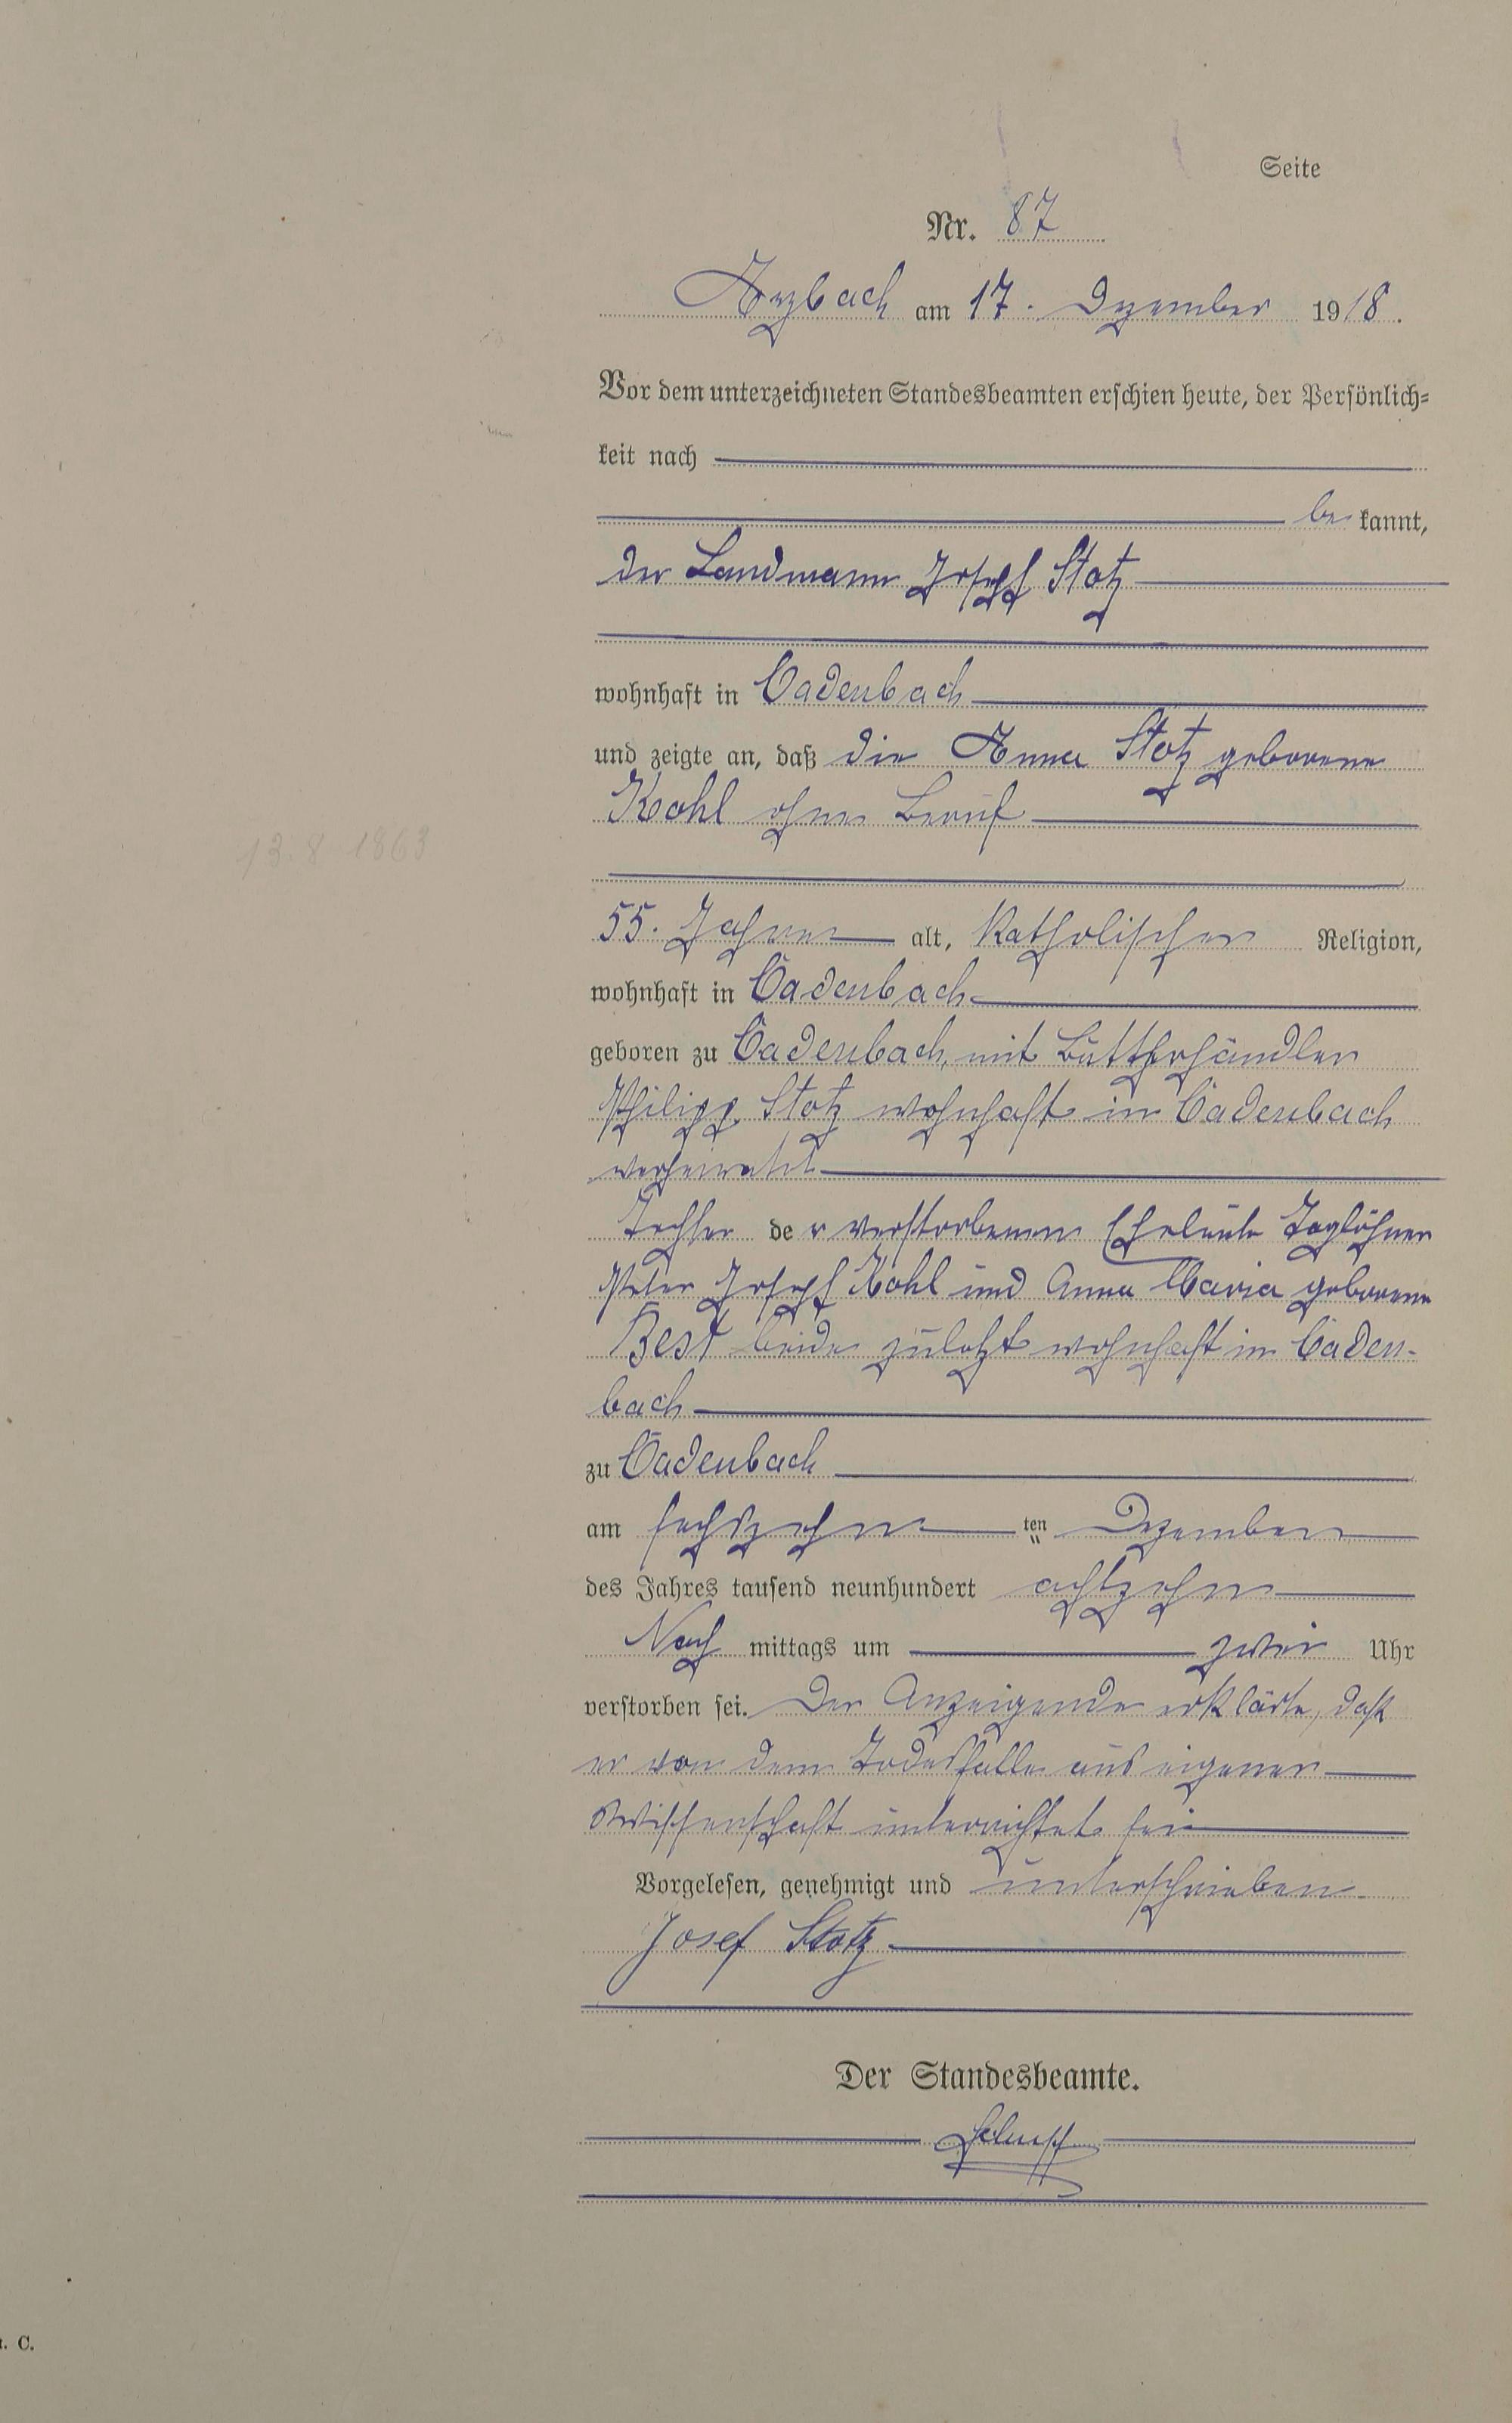 Seite
Nr. 87
Arzbach am 17. Dezember 1918.
Vor dem unterzeichneten Standesbeamten erschien heute, der Persönlich-
keit nach
be kannt,
der Landmann Joseph Stotz
wohnhaft in Cadenbach
und zeigte an, daß die Anna Stotz geborene
Kohl ohne Beruf
13.8 1863
55. Jahre alt, katholischer Religion,
wohnhaft in Cadenbach
geboren zu Cadenbach, mit Butterhändler
Philipp Stotz wohnhaft in Cadenbach
verheiratet
Tochter der verstorbenen Eheleute Taglöhner
Peter Joseph Kohl und Anna Maria geborene
Best beide zuletzt wohnhaft in Caden-
bach
zu Cadenbach
am sechszehn ten Dezember
des Jahres tausend neunhundert achtzehn
Nach mittags um zwei Uhr
verstorben sei. Der Anzeigende erklärte, daß
er von dem Todesfalle aus eigener
Wissenschaft unterrichtet sei
Vorgelesen, genehmigt und unterschrieben
Josef Stotz
Der Standesbeamte.
. C.